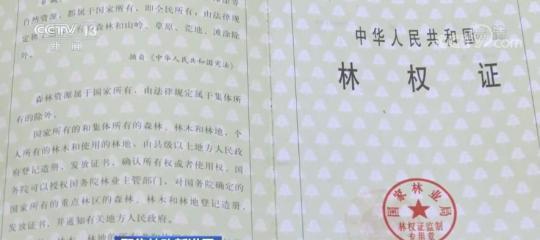 CCTV 13
自然资源,都属于国家所有,即全民所有;由法律规
森林和山岭、草原、荒地、滩涂除
外。
摘自《中华人民共和国宪法》
森林资源属于国家所有,由法律规定属于集体所
有的除外。
国家所有的和集体所有的森林、林木和林地,个
人所有的林木和使用的林地,由县级以上地方人民政
府登记造册,发放证书,确认所有权或者使用权。国
务院可以授权国务院林业主管部门,对国务院确定的
国家所有的重点林区的森林、林木和林地登记造册,
发放证书,并通知有关地方人民政府。
中华人民共和国
林权证
国家林业局
林权证监制
专用章